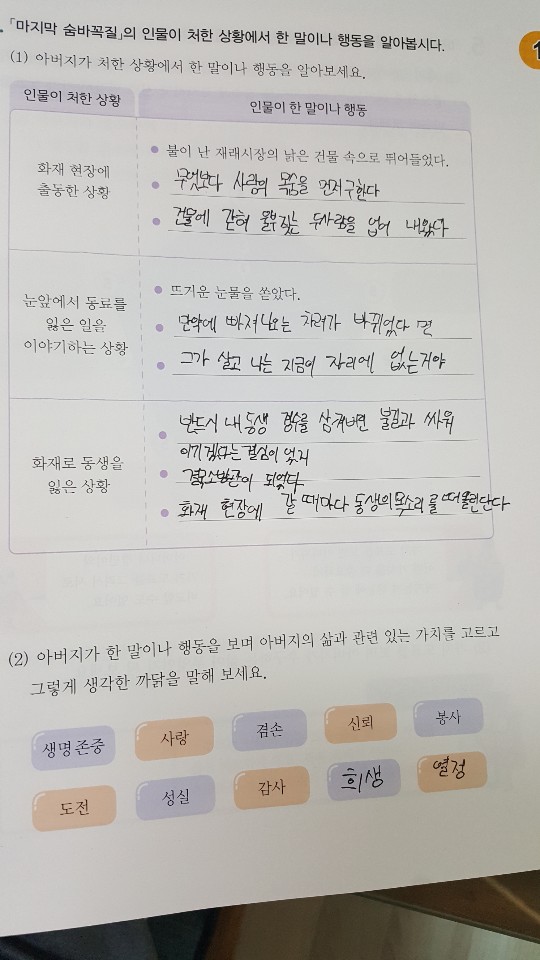 「마지막 숨바꼭질」의 인물이 처한 상황에서 한 말이나 행동을 알아봅시다.
1
(1) 아버지가 처한 상황에서 한 말이나 행동을 알아보세요.
인물이 처한 상황
인물이 한 말이나 행동
화재 현장에
출동한 상황
불이 난 재래시장의 낡은 건물 속으로 뛰어들었다.
무엇보다 사람의 목숨을 먼저구한다
건물에 갇혀 울부짖는 두사람을 업어 내왔다
눈앞에서 동료를
잃은 일을
이야기하는 상황
뜨거운 눈물을 쏟았다.
만약에 빠져나오는 차려가 바뀌었다 면
그가 살고 나는 지금이 자리에 없는거야
화재로 동생을
잃은 상황
반드시 내 동생 경수를 삼켜버린 불길과 싸워
이기겠다는 결심이 었지
결국소방관이 되었다
화재 현장에 갈 때마다 동생의목소리를 떠올린단다
(2) 아버지가 한 말이나 행동을 보며 아버지의 삶과 관련 있는 가치를 고르고
그렇게 생각한 까닭을 말해 보세요.
생명 존중
사랑
겸손
신뢰
봉사
도전
성실
감사
희생
열정